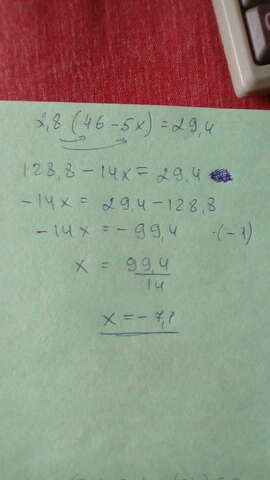 2,8 (46-5x)=29,4
128,8-14x=29,4
-14x=29,4-128,8
-14x=-99,4 ·(-1)
x = 99,4/14
x=-7,1